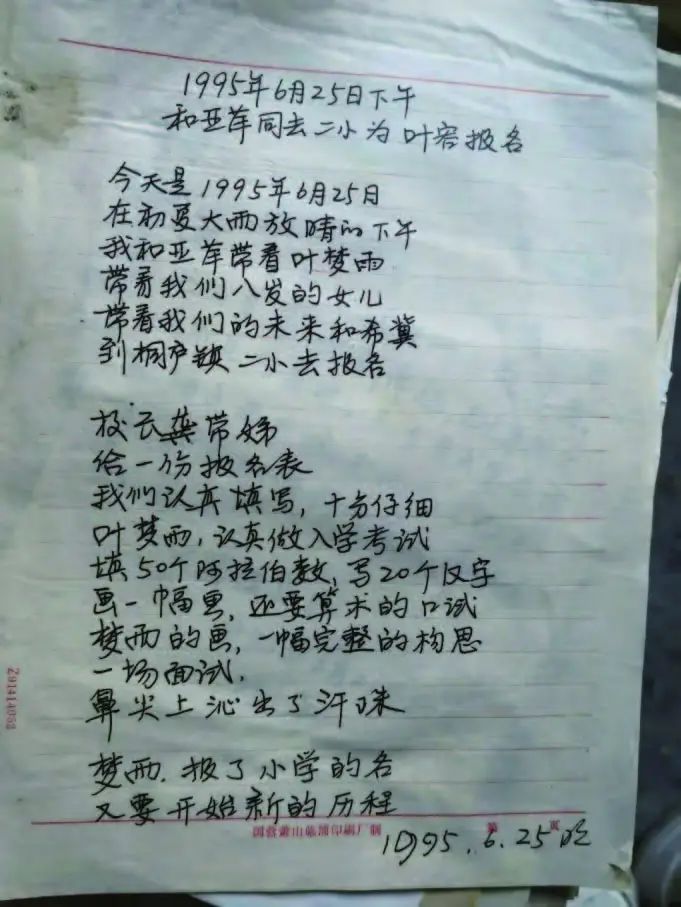 1995年6月25日下午
和亚萍同去二小为叶容报名
今天是1995年6月25日
在初夏大雨放晴的下午
我和亚萍带着叶梦雨
带着我们八岁的女儿
带着我们的未来和希冀
到桐庐镇二小去报名
校长龚带娣
给一份报名表
我们认真填写,十分仔细
叶梦雨,认真做入学考试
填50个阿拉伯数,写20个汉字
画一幅画,还要算术的口试
梦雨的画,一幅完整的构思
一场面试,
鼻尖上沁出了汗珠
梦雨,报了小学的名
又要开始新的历程
国营萧山临浦印刷厂制
第 页
1995.6.25晚
Z91414053